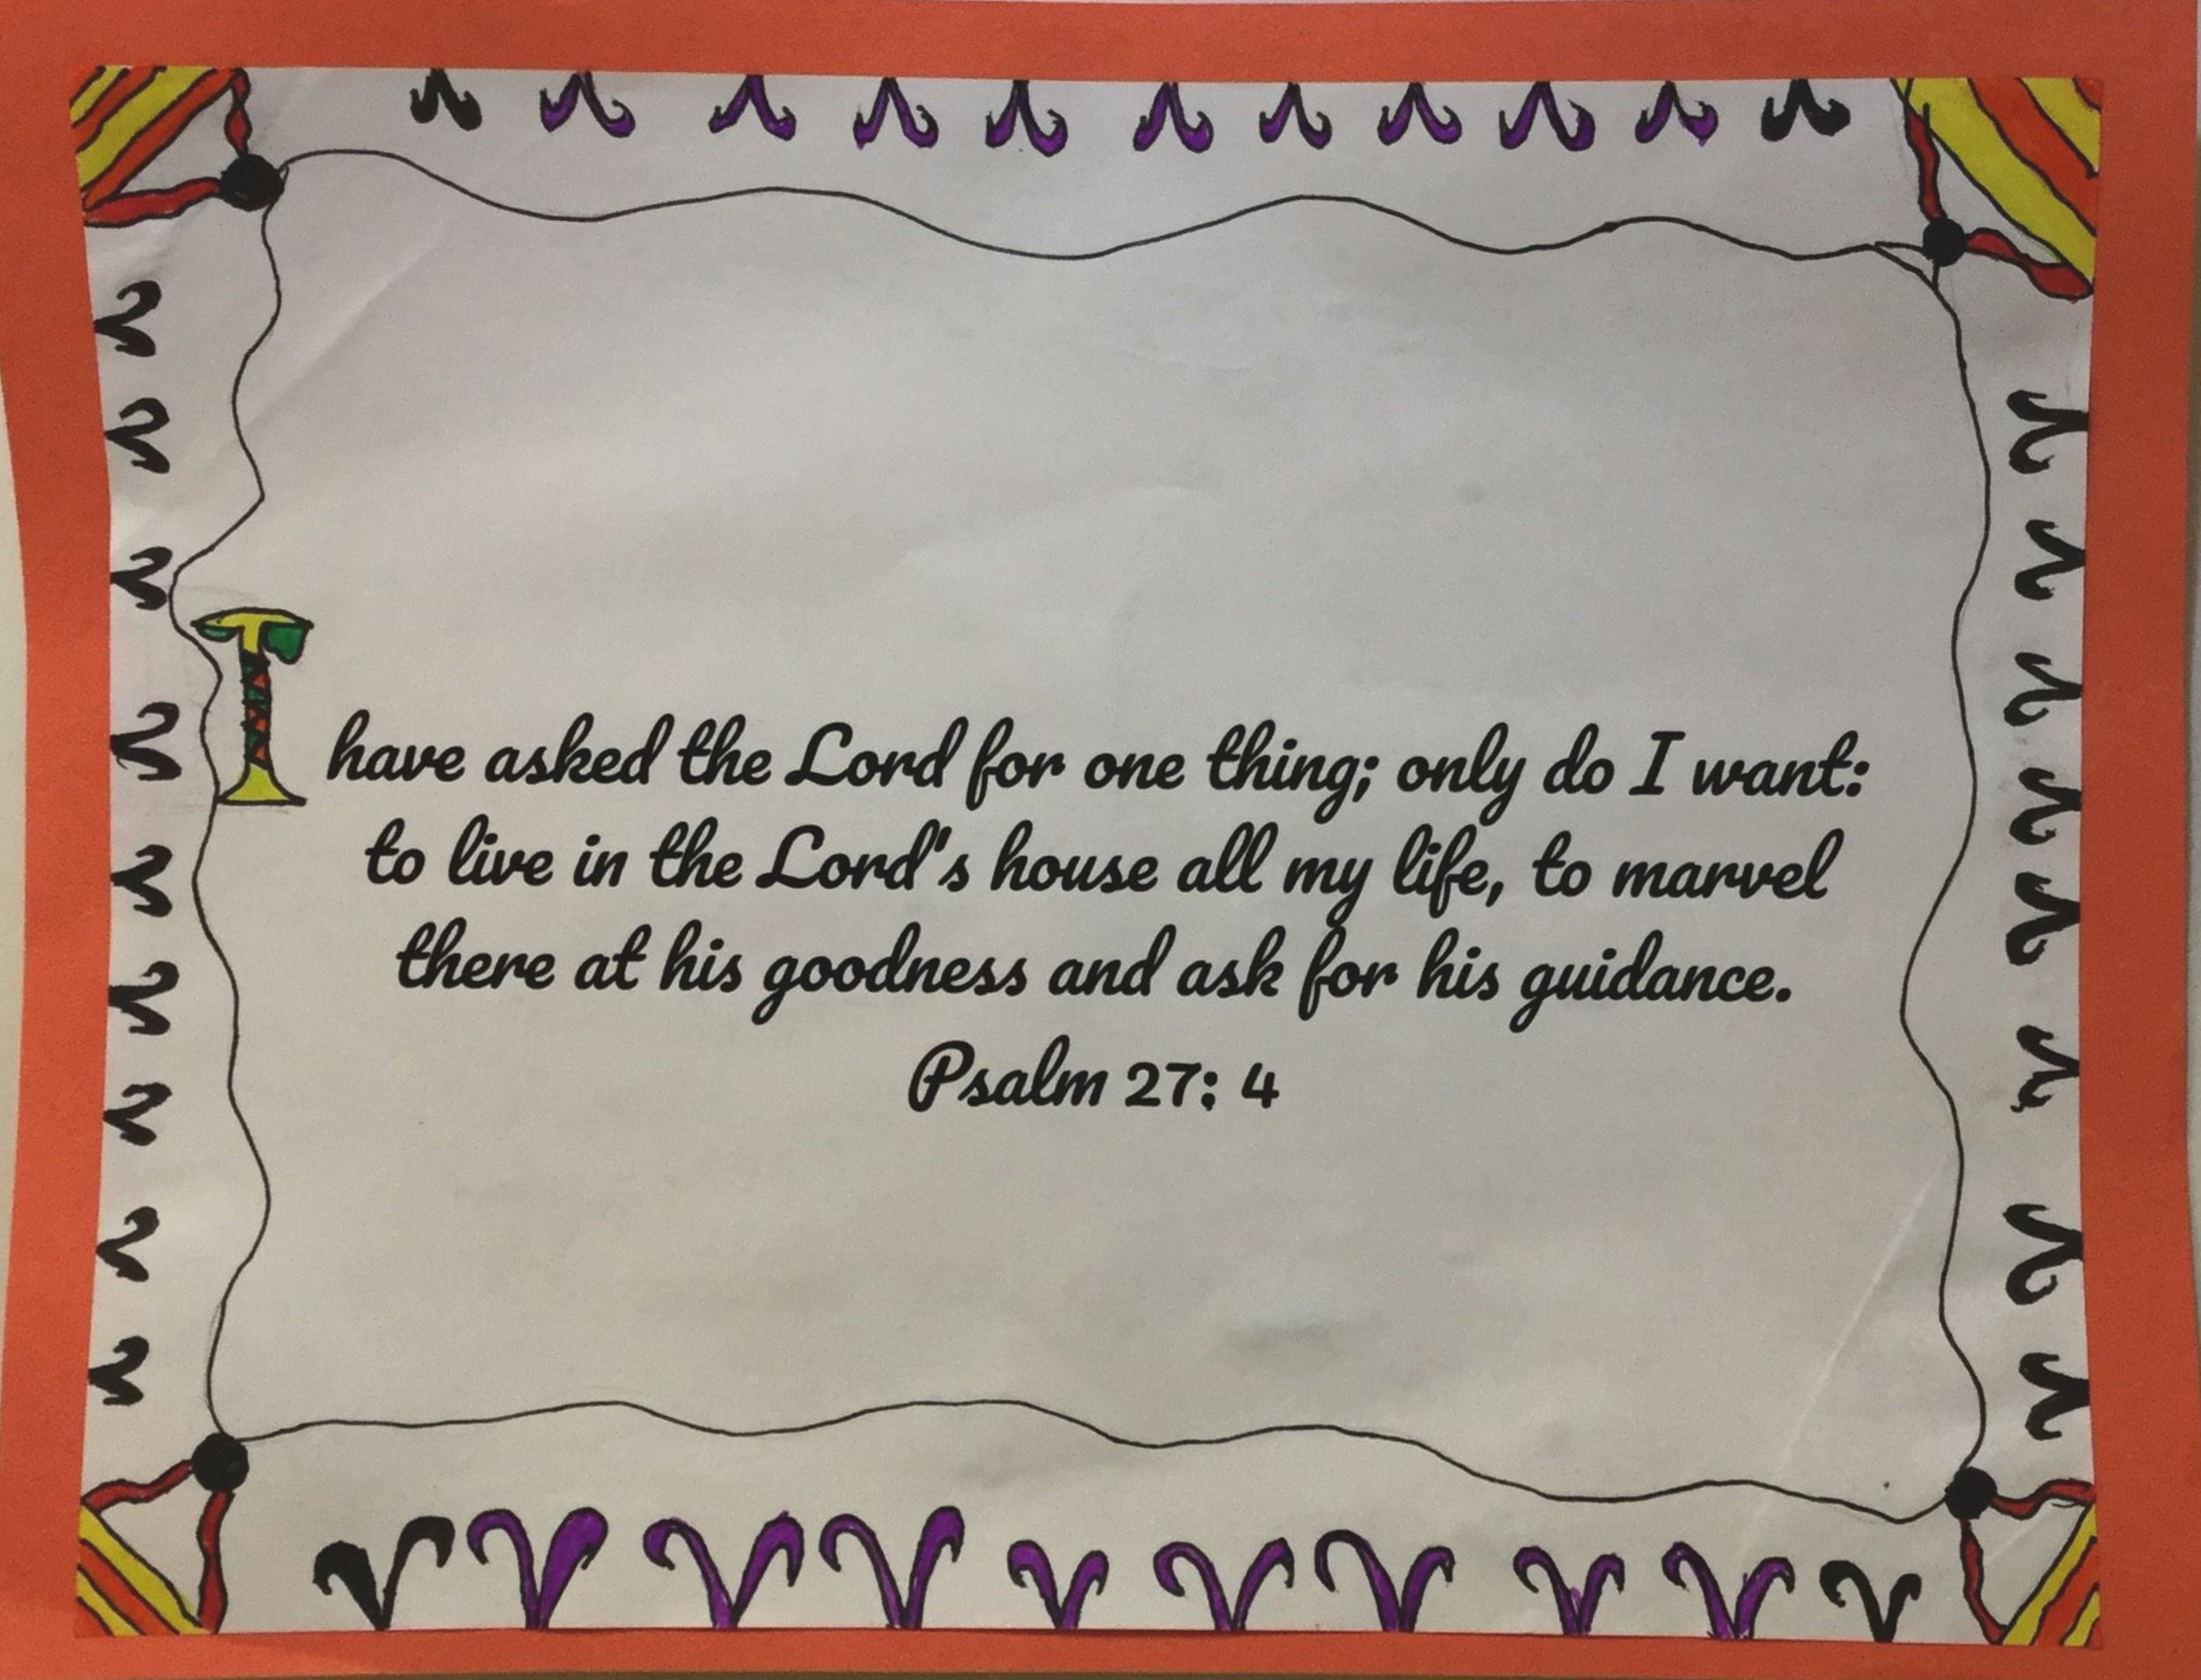 I have asked the Lord for one thing; only do I want:
to live in the Lord's house all my life, to marvel
there at his goodness and ask for his guidance.
Psalm 27: 4